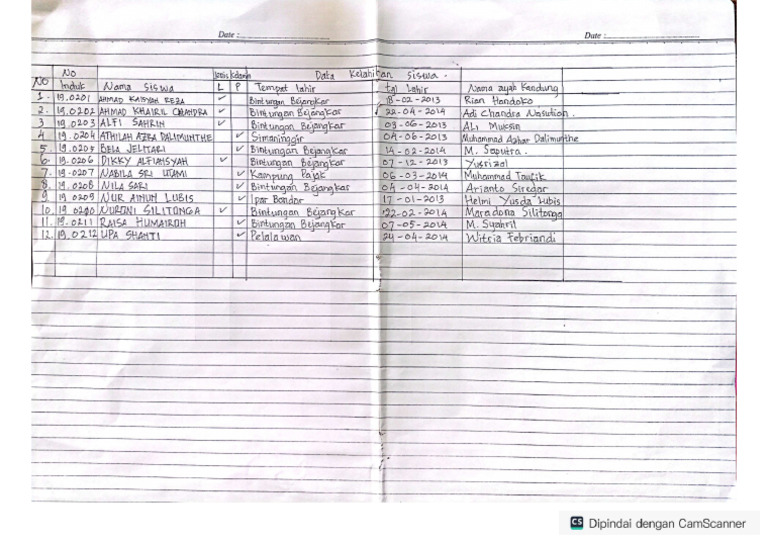 Date : Date :
No Jenis Kelamin Data Kelahiran Siswa.
No Induk Nama Siswa L P Tempat lahir tgl lahir Nama ayah Kandung
1. 19.0201 AHMAD REZA ✓ Bintungan Bejangkar 18-02-2013 Rian Handoko
2. 19.0202 AHMAD KHAIRIL CHANDRA ✓ Bintungan Bejangkar 22-04-2014 Adi Chandra Nasution.
3 19.0203 ALFI SAHRIN ✓ Bintungan Bejangkar 03-06-2013 ALI Muksin
4 19.0204 ATHILAH AZRA DALIMUNTHE ✓ Simaninggir 04-06-2013 Muhammad Azhar Dalimunthe
5. 19.0205 BELA JELITARI ✓ Bintungan Bejangkar 14-02-2014 M. Saputra.
6. 19.0206 DIKKY ALFIANSYAH ✓ Bintungan Bejangkar 07-12-2013 Yusrizal
7. 19.0207 NABILA SRI UTAMI ✓ Kampung Pajak 06-03-2014 Muhammad Taufik
8. 19.0208 NILA SARI ✓ Bintungan Bejangkar 04-04-2014 Arianto Siregar
9 19.0209 NUR AINUN LUBIS ✓ Ipar Bondar 17-01-2013 Helmi Yusda Lubis
10. 19.0210 SILITONGA ✓ Bintungan Bejangkar 22-02-2014 Maradona Silitonga
11. 19.0211 RAISA HUMAIROH ✓ Bintungan Bejangkar 07-05-2014 M. Syahril
12. 19.0212 UPA SHANTI ✓ Pelalawan 24-04-2014 Witria Febriandi
CS Dipindai dengan CamScanner